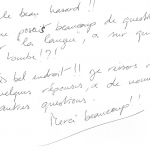 le beau hasard !!
me posais beaucoup de questi
la langue, & sur qu
tombé !?!
bel endroit !! je ressors
quelques réponses, & de nou
autres questions.
Merci beaucoup !!